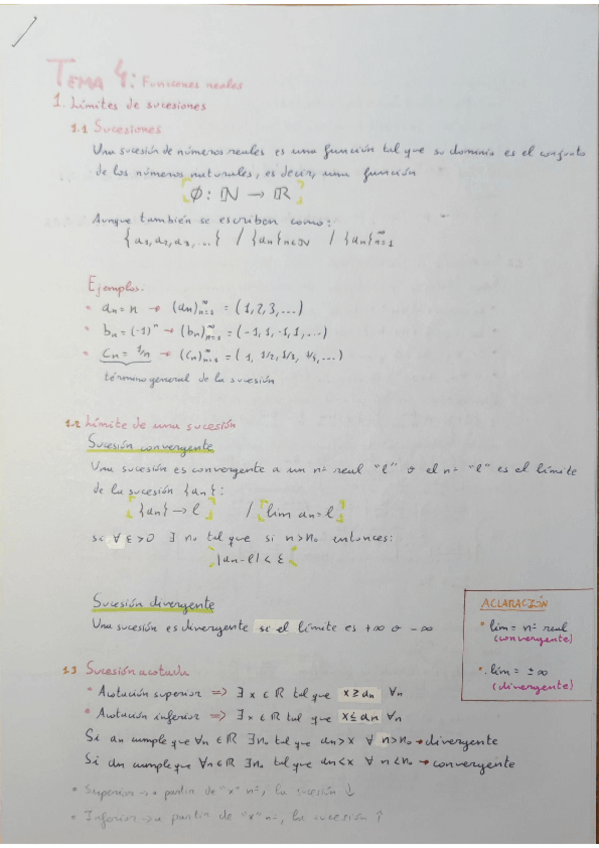 TEMA 4: Funciones reales
1. Límites de sucesiones
1.1 Sucesiones
Una sucesión de números reales es una función tal que su dominio es el conjunto
de los números naturales, es decir, una función
Ø: ℕ → ℝ
Aunque también se escriben como:
{a₁, a₂, a₃, ...} / {an}n∈ℕ / {an}∞n=1
Ejemplos.
• an = n → (an)∞n=1 = (1, 2, 3, ...)
• bn = (-1)ⁿ → (bn)∞n=1 = (-1, 1, -1, 1, ...)
• Cn = 1/n → (Cn)∞n=1 = (1, 1/2, 1/3, 1/4, ...)
término general de la sucesión
1.2 Límite de una sucesión
Sucesión convergente
Una sucesión es convergente a un nº real "l" o el nº "l" es el límite
de la sucesión {an}:
{an} → l / lim an = l
si ∀ ε > 0 ∃ n₀ tal que si n > n₀ entonces:
|an - l| < ε
Sucesión divergente
Una sucesión es divergente si el límite es +∞ o -∞
ACLARACIÓN
• lim = nº real
(convergente)
• lim = ±∞
(divergente)
1.3 Sucesión acotada
• Acotación superior => ∃ x ∈ ℝ tal que x ≥ an ∀n
• Acotación inferior => ∃ x ∈ ℝ tal que x ≤ an ∀n
Si an cumple que ∀n ∈ ℝ ∃ n₀ tal que an > x ∀ n > n₀ → divergente
Si an cumple que ∀n ∈ ℝ ∃ n₀ tal que an < x ∀ n < n₀ → convergente
• Superior → a partir de "x" nº, la sucesión ↓
• Inferior → a partir de "x" nº, la sucesión ↑